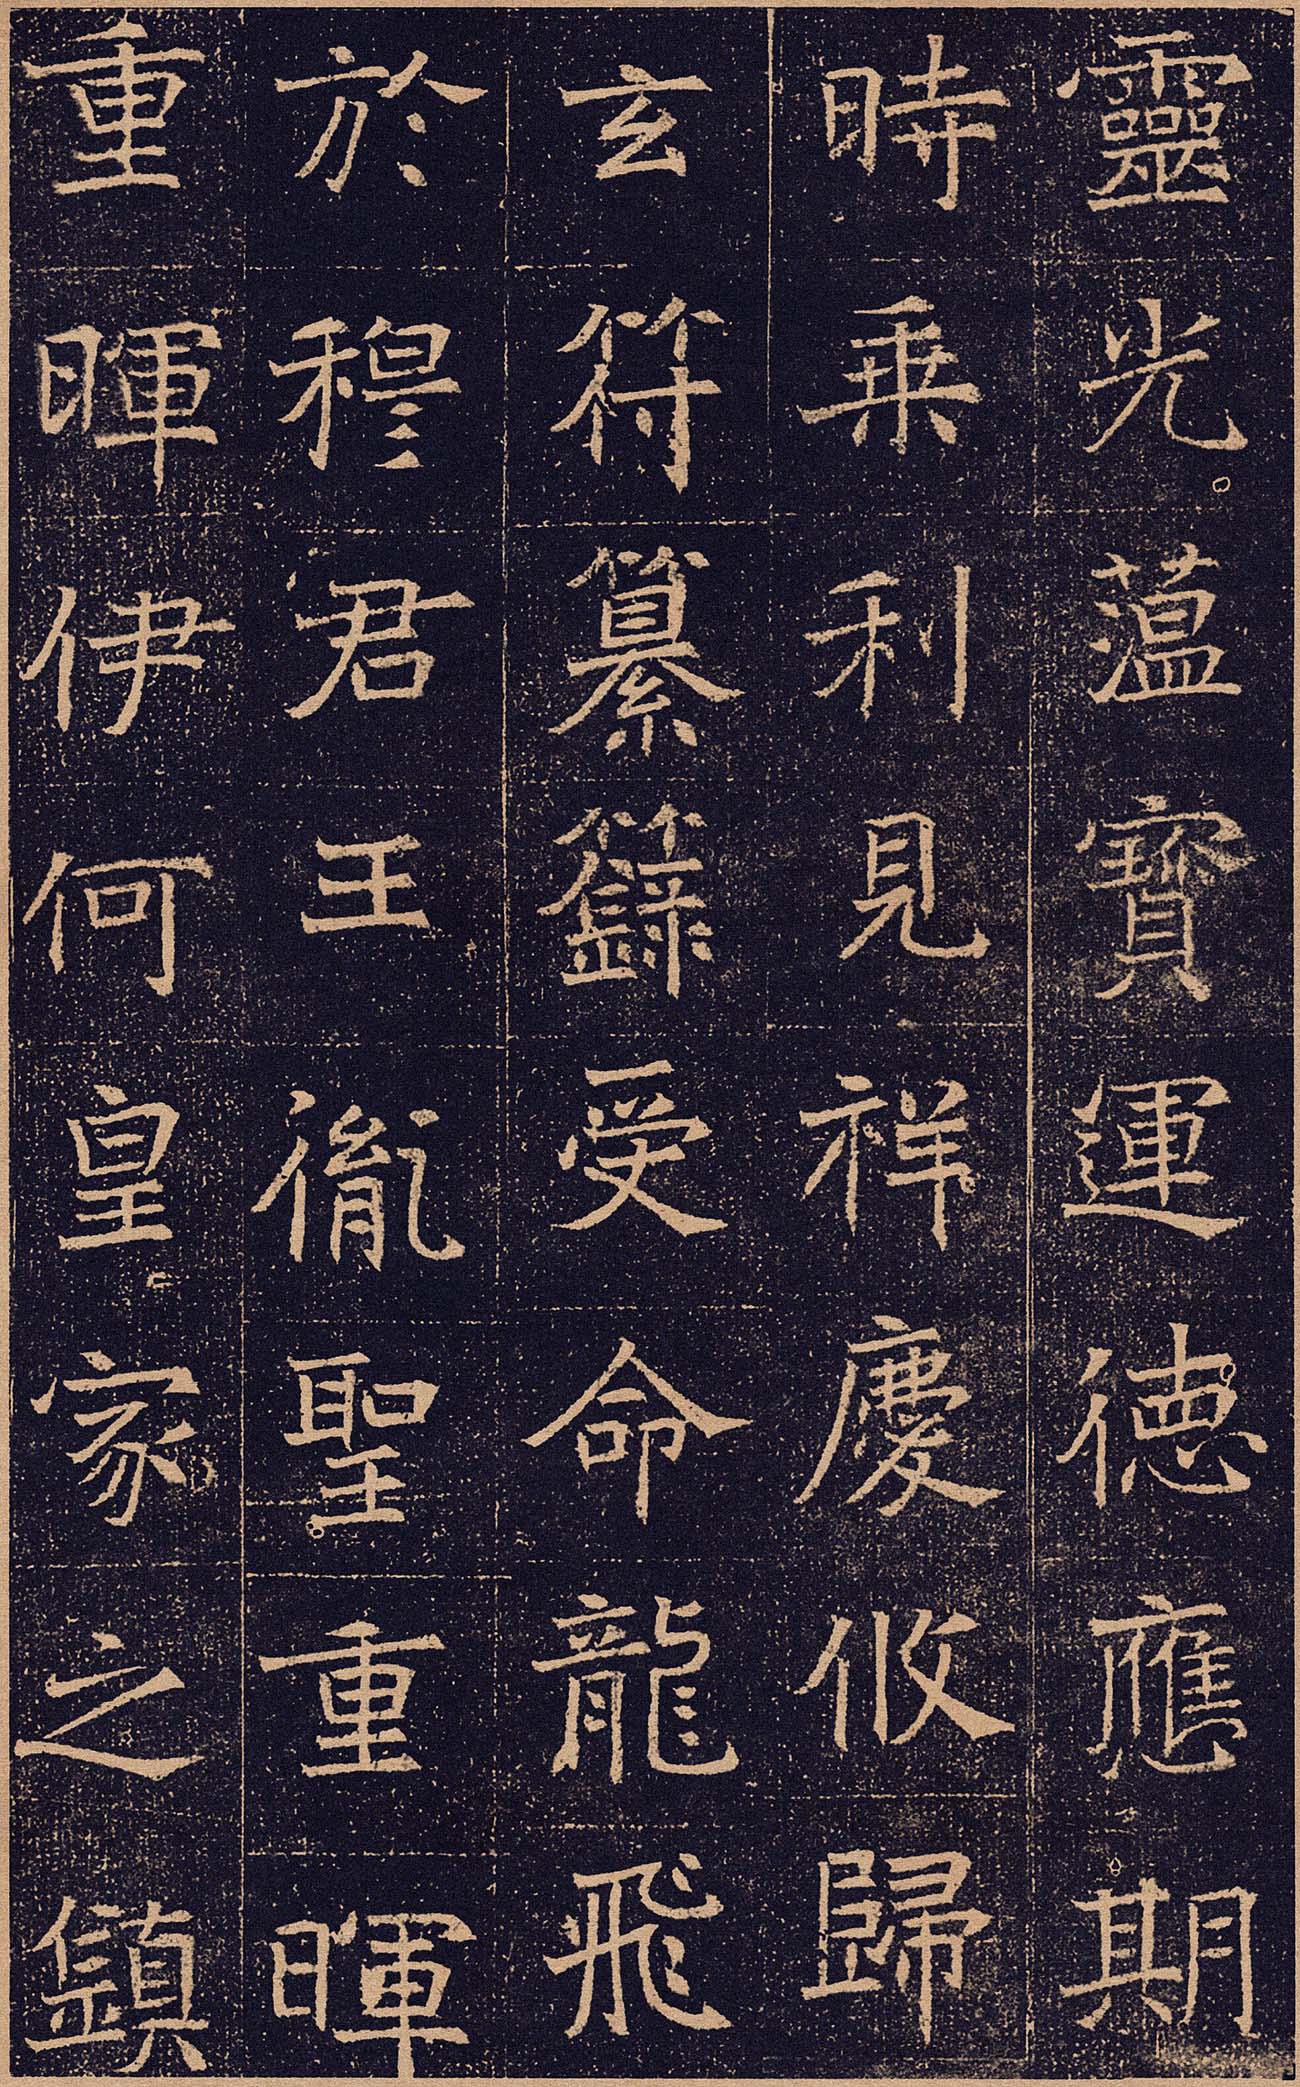 靈光蘊寶運德應期
時乗利見祥慶攸歸
玄符纂籙受命龍飛
於穆君王胤聖重暉
重暉伊何皇家之鎮